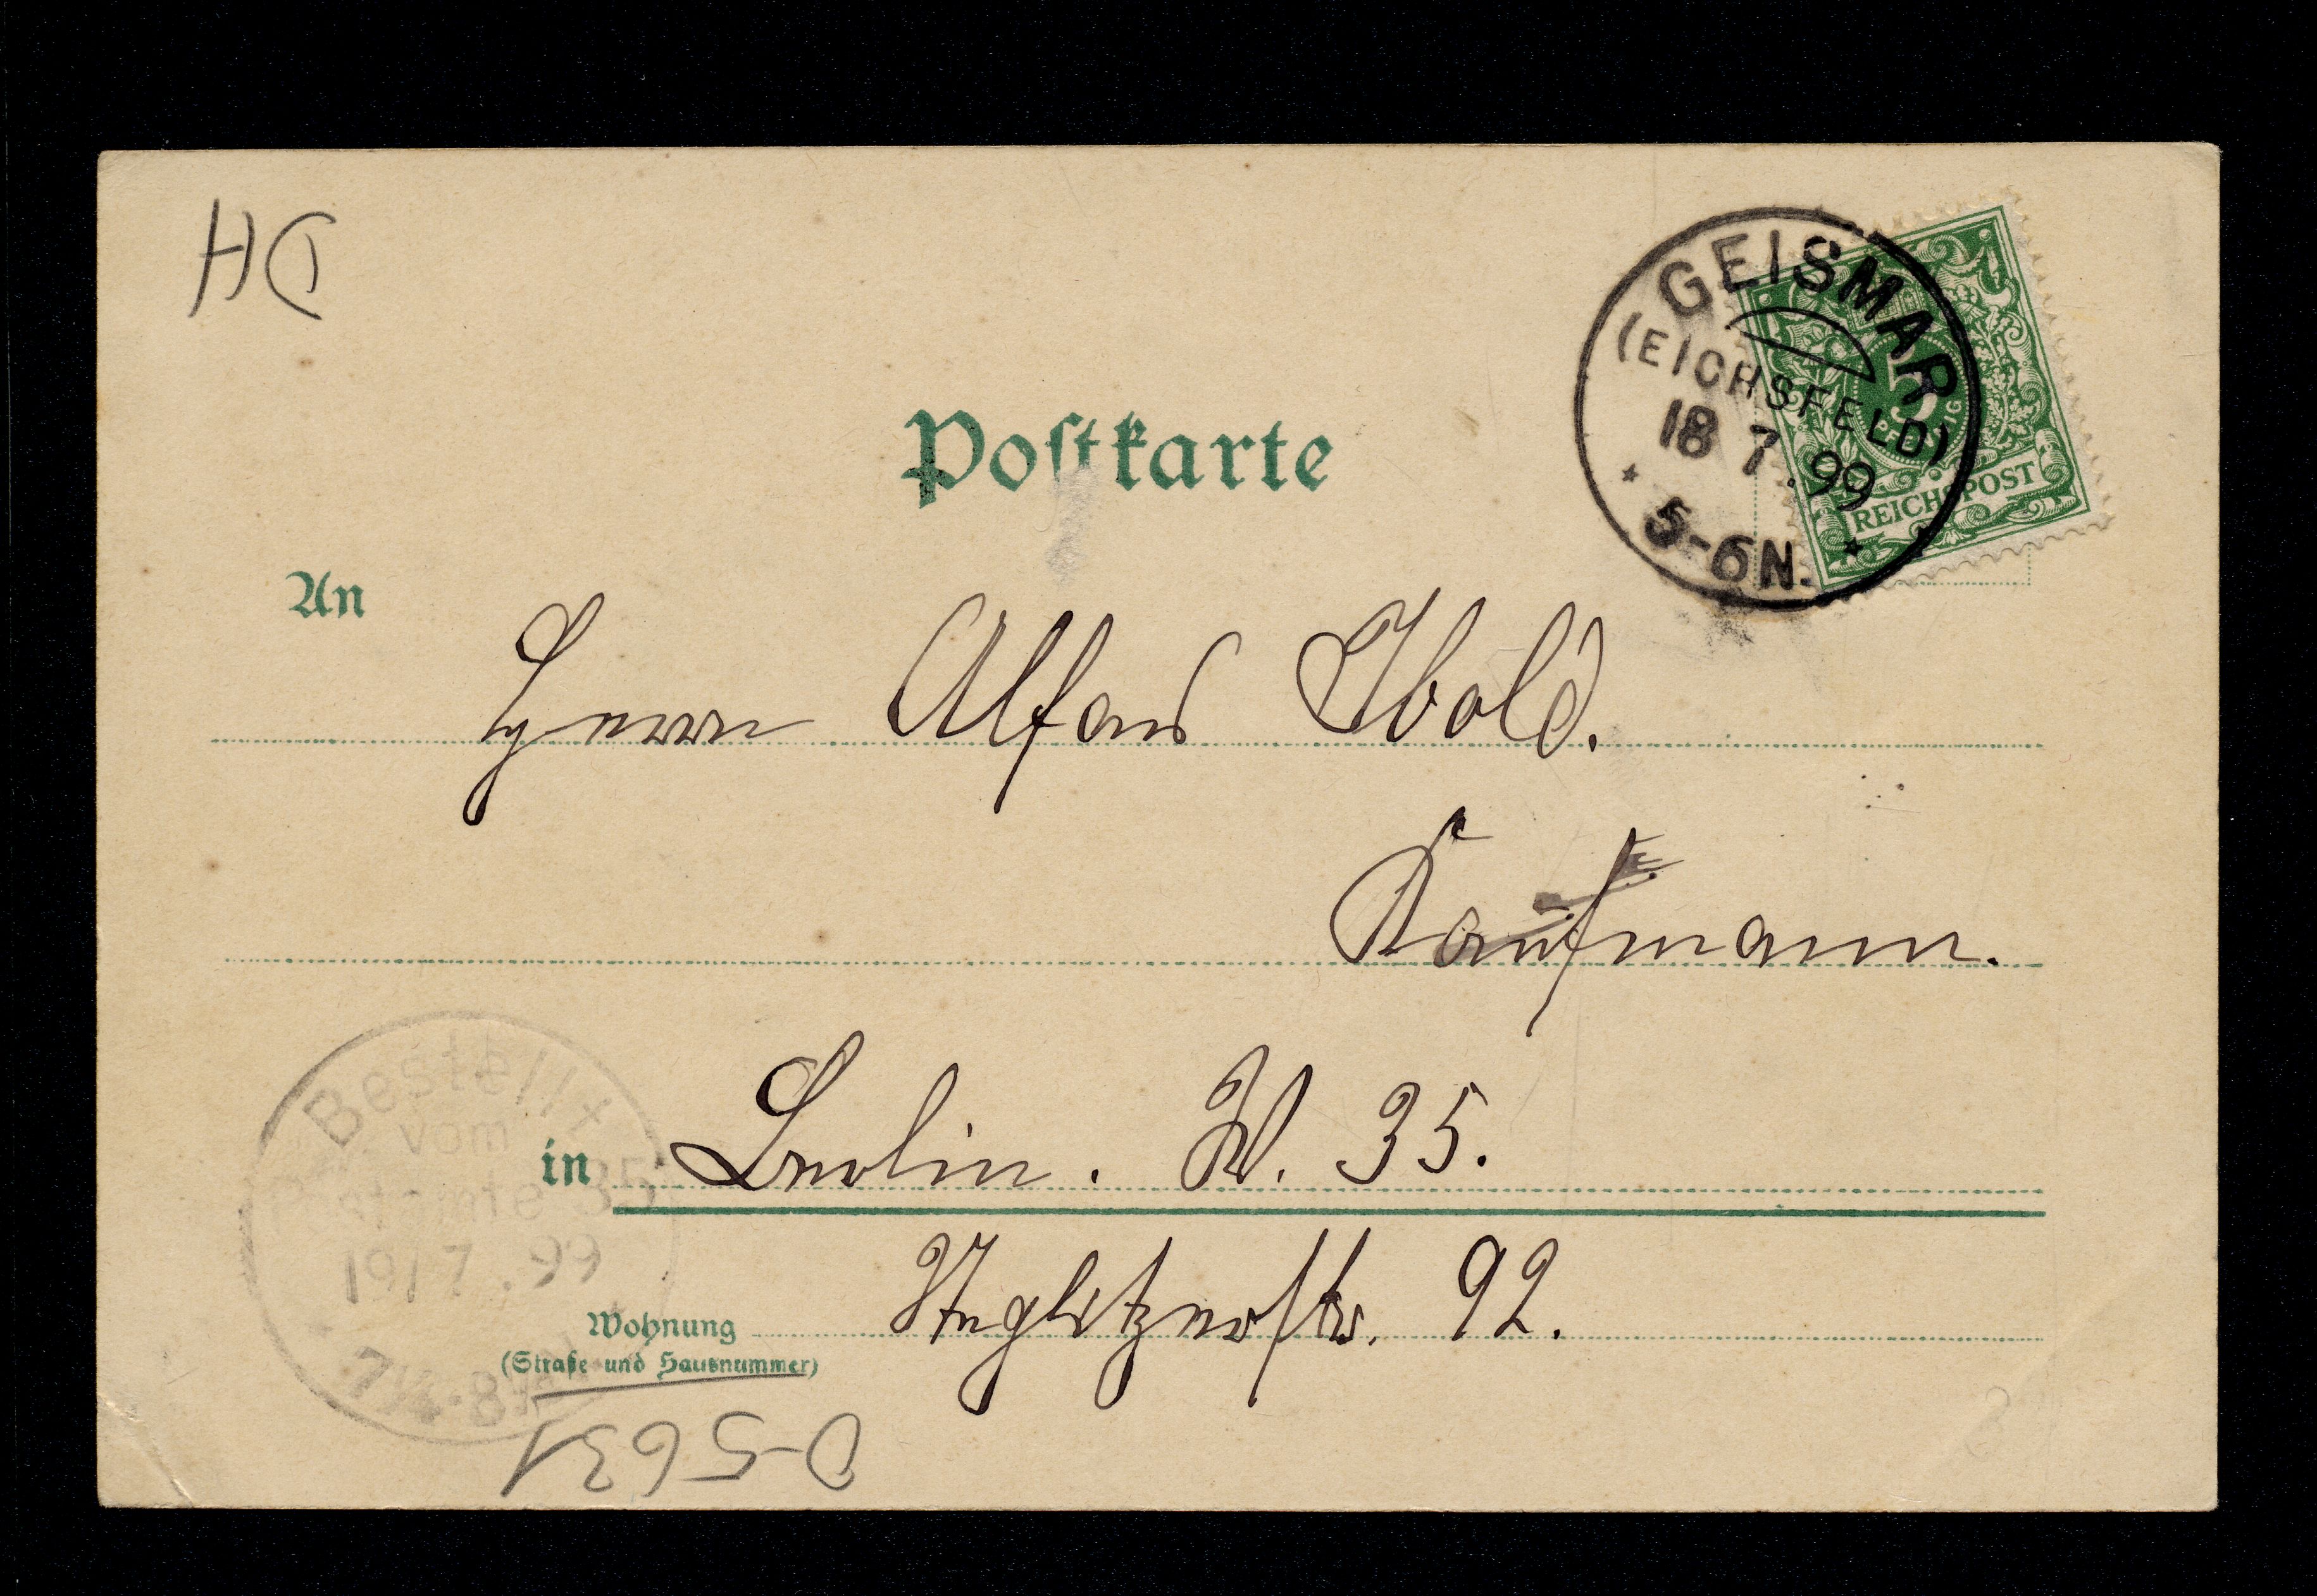 HD
GEISMAR
(EICHSFELD)
18 7.99
5-6N.
5
REICHSPOST
Postkarte
An
Herrn Alfred Ibold.
Kaufmann.
in Berlin. W. 35.
Steglitzerstr. 92.
Wohnung
(Straße und Hausnummer)
Bestellt
vom
Postamte 35
19/7.99
D-5631